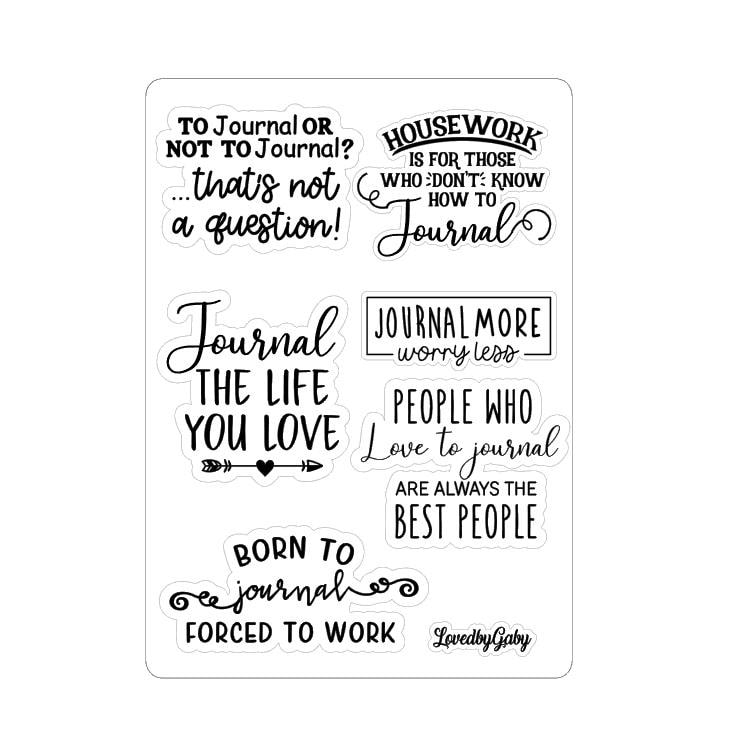 TO Journal OR
NOT TO Journal?
...that's not
a question!
HOUSEWORK
IS FOR THOSE
WHO DON'T KNOW
HOW TO
Journal
Journal
THE LIFE
YOU LOVE
JOURNAL MORE
worry less
PEOPLE WHO
Love to journal
ARE ALWAYS THE
BEST PEOPLE
BORN TO
journal
FORCED TO WORK
LovedbyGaby